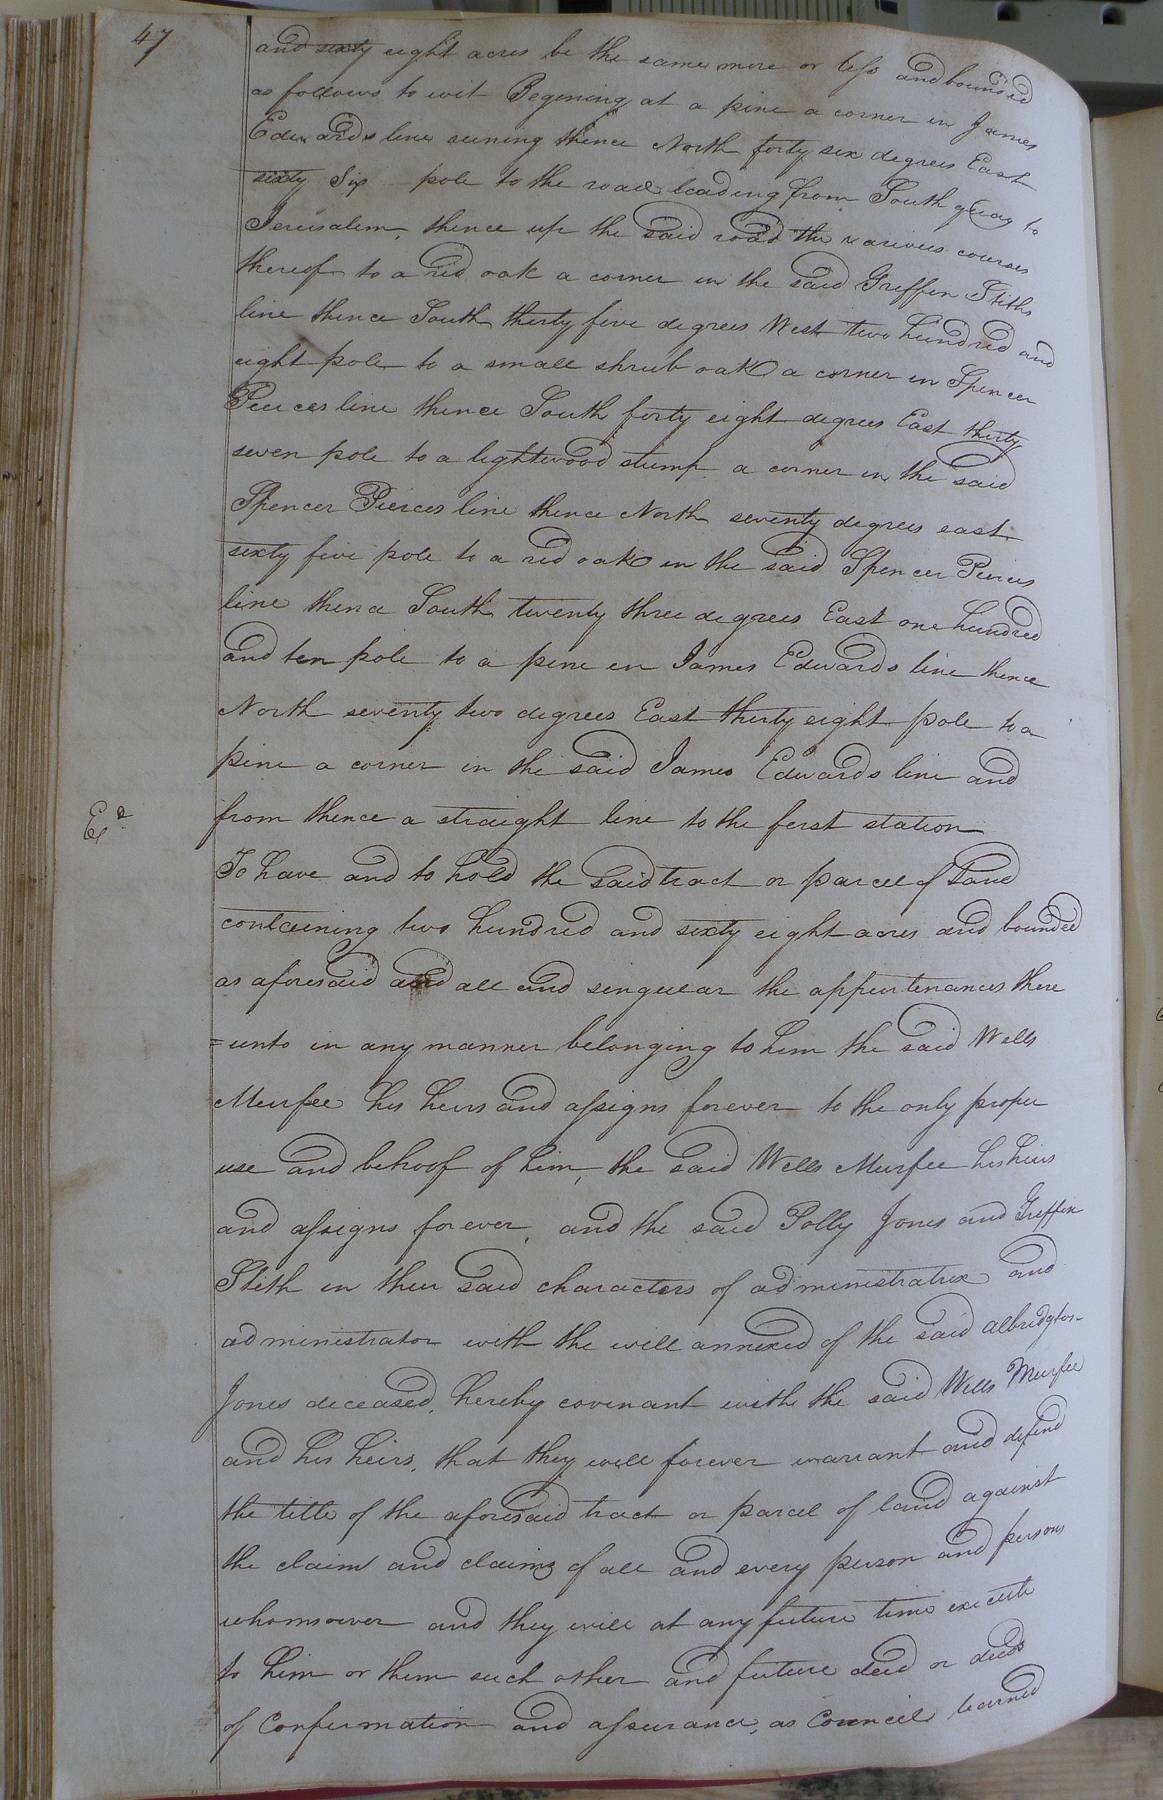 47
and sixty eight acres be the same more or less and bounded
as follows to wit Begining at a pine a corner in James
Edwards line runing thence North forty six degrees East
sixty six pole to the road leading from South quay to
Jerusalem, thence up the said road the various courses
thereof to a red oak a corner in the said Griffin Stiths
line thence South thirty five degrees West two hundred and
eight pole to a small shrub oak a corner in Spencer
Peirces line thence South forty eight degrees East thirty
seven pole to a lightwood stump a corner in the said
Spencer Pierces line thence North seventy degrees east
sixty five pole to a red oak in the said Spencer Peirces
line thence South twenty three degrees East one hundred
and ten pole to a pine in James Edwards line thence
North seventy two degrees East thirty eight pole to a
pine a corner in the said James Edwards line and
from thence a straight line to the first station
Ex.d
To have and to hold the said tract or parcel of Land
containing two hundred and sixty eight acres and bounded
as aforesaid and all and singular the appurtenances there
=unto in any manner belonging to him the said Wells
Murfee his heirs and assigns forever to the only proper
use and behoof of him, the said Wells Murfee his heirs
and assigns forever, and the said Polly Jones and Griffin
Stith in their said characters of administratrix and
administrator with the will annexed of the said Albridgton
Jones deceased, hereby covenant with the said Wells Murfee
and his heirs, that they will forever warrant and defend
the title of the aforesaid tract or parcel of land against
the claim and claims of all and every person and persons
whomsoever and they will at any future time execute
to him or them such other and future deed or deeds
of Confirmation and assurance, as Council learned